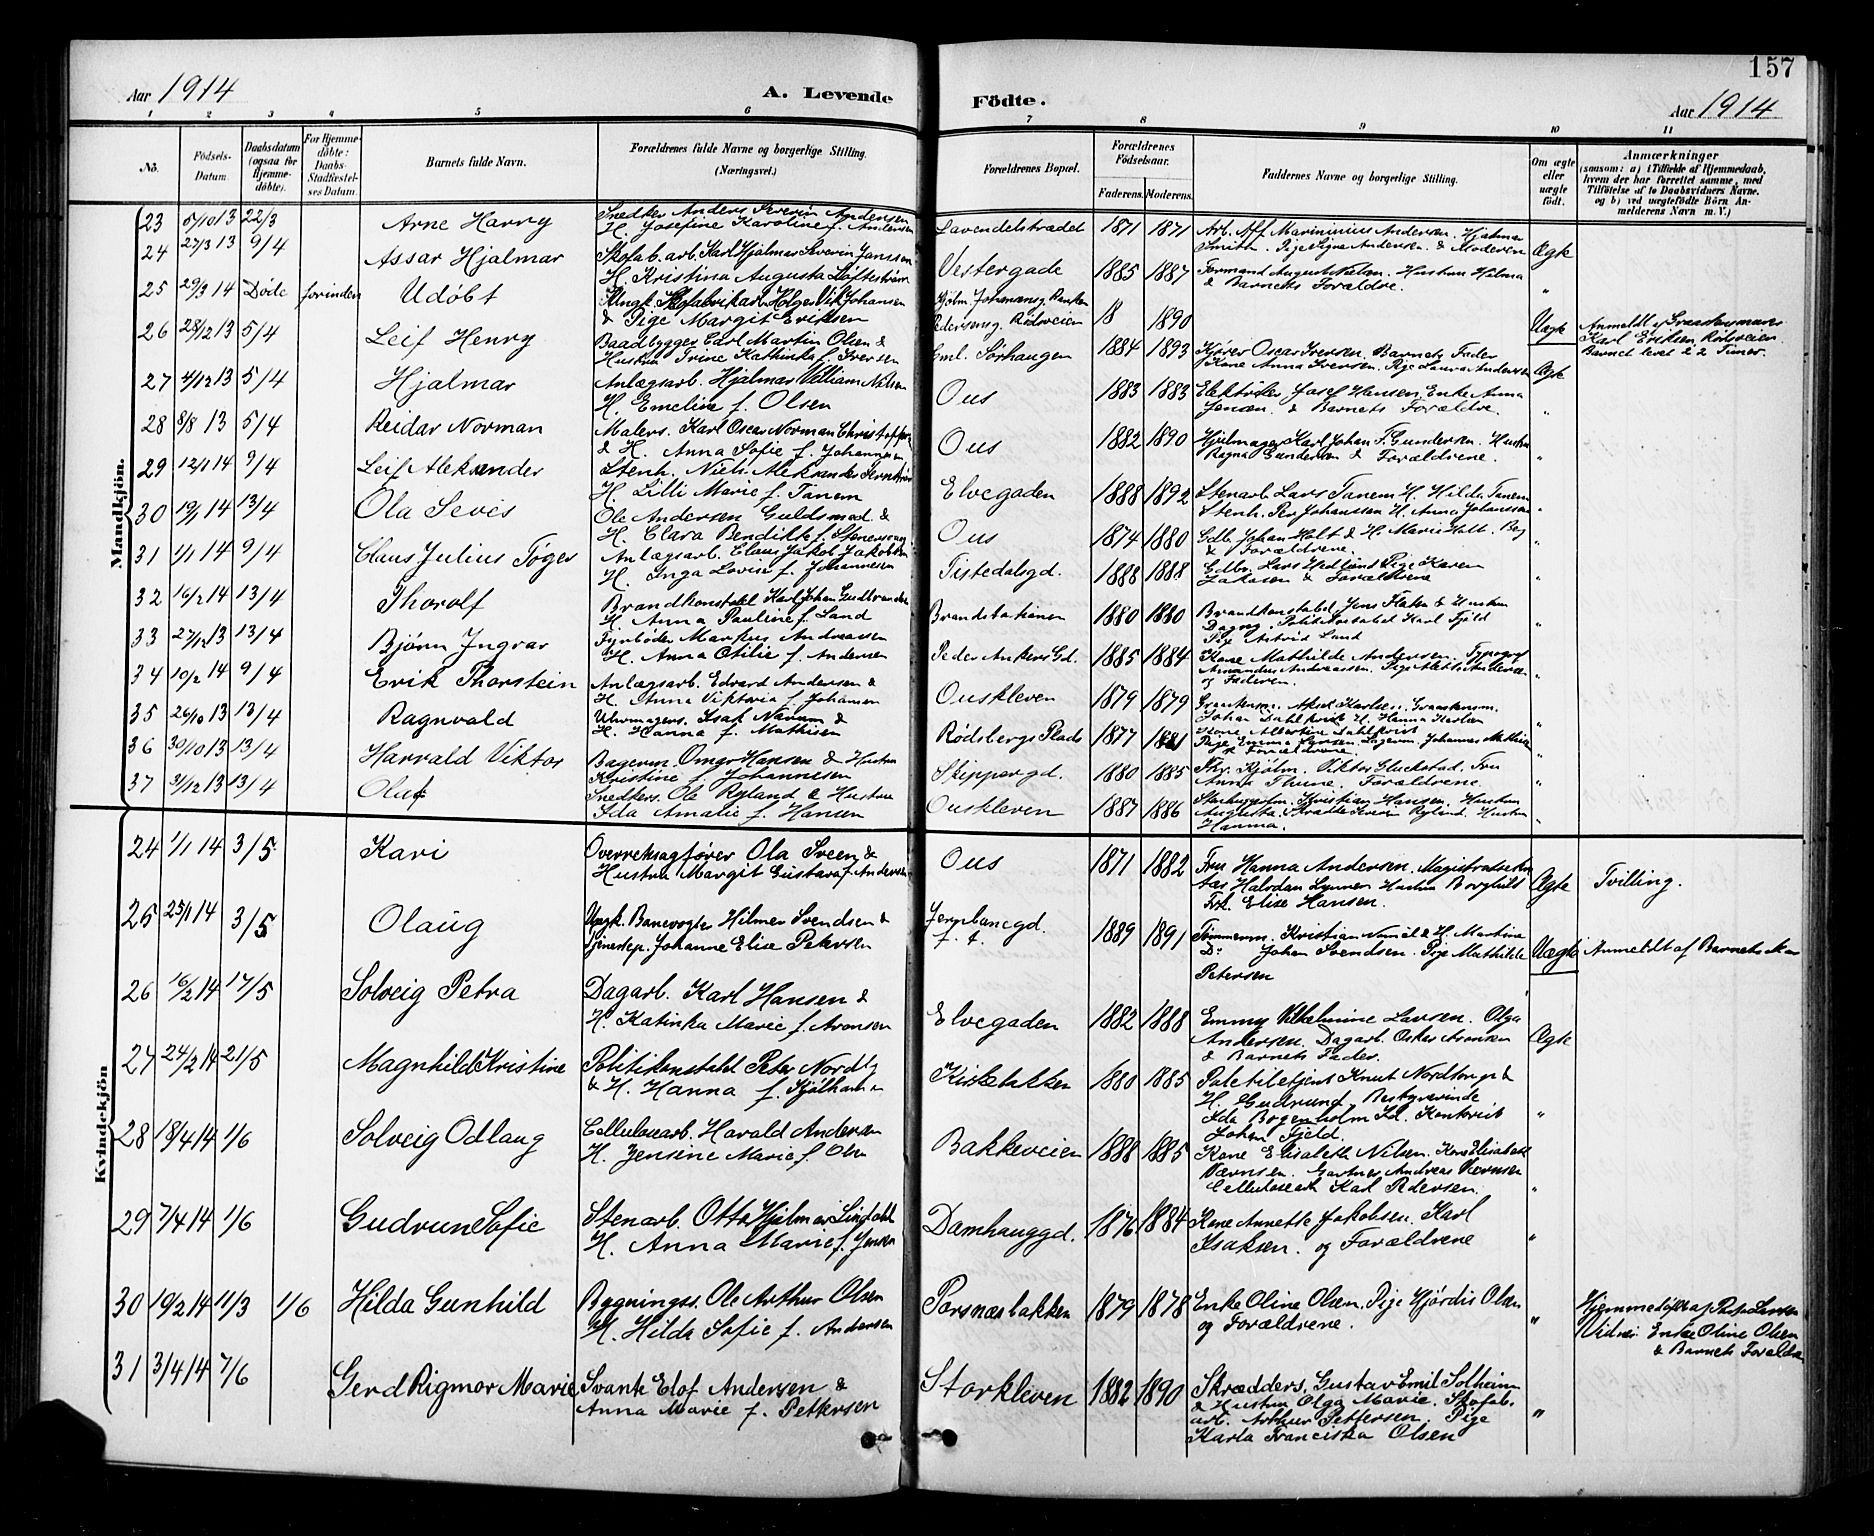 157
Aar 1914
A. Levende
Födte.
Aar 1914
1 2 3 4 5 6 7 8 9 10 11
No.
Födsels-Datum.
Daabsdatum (ogsaa för Hjemme-döbte).
For Hjemme-döbte: Daabs-Stadfæstel-ses Datum.
Barnets fulde Navn.
Forældrenes fulde Navne og borgerlige Stilling. (Næringsvei.)
Forældrenes Bopæl.
Forældrenes Födselsaar.
Faderens. Moderens.
Faddernes Navne og borgerlige Stilling.
Om ægte eller uægte födt.
Anmærkninger
(saasom: a) i Tilfælde af Hjemmedaab, hvem der har forrettet samme, med Tilföielse af to Daabsvidners Navne, og b) ved uægtefödte Börn An-melderens Navn m. V.)
Mandkjön.
23 5/10 13 22/3 Arne Harry
Snedker Anders Severin Andersen
H. Josefine Karoline f. Andersen
Lavendelstrædet 1871 1871
Arb. Alf Marininius Andersen. Hjalmar
Smith. Pige Signe Andersen & Moderen Ægte
24 27/3 13 9/4 Assar Hjalmar
Skofab. arb. Karl Hjalmar Severin Janssen
H. Kristina Augusta Löfteström
Vestergade 1885 1887
Formand August Nielsen. Hustru Hilma
& Barnets Forældre. "
25 29/3 14 Døde forinden Udöbt
Ungk. Skofabrikarb. Holger Vik Johansen
& Pige Margit Eriksen
18 1890 Uægte
Anmeldt af
Karl Eriksen Rödsveien.
Barnet levet 22 Timer.
26 28/12 13 5/4 Leif Henry
Baadbygger Carl Martin Olsen &
Hustru Trine Kathinka f. Iversen
Eml. Sörhaugen 1884 1893
Kjører Oscar Iversen. Barnets Fader
Kone Anna Iversen. Pige Laura Andersen Ægte
27 4/12 13 5/4 Hjalmar
Anlægsarb. Hjalmar William Nilsen
H. Emeline f. Olsen
Ous 1883 1883
Elektriker Josef Hansen. Enke Anna
Jensen. & Barnets Forældre. "
28 8/8 13 5/4 Reidar Norman
Malers. Karl Oscar Norman
& H. Anna Sofie f. Johannesen
Ous 1882 1890
Hjulmager Karl Johan F. Gundersen. Hustru
Ragna Gundersen & Forældrene. "
29 12/1 14 9/4 Leif Aleksander
Stenh. Niels Aleksander
H. Lilli Marie f. Tanem
Elvegaden 1888 1892
Stenarb. Lars Tanem H. Hilda Tanem
Stenh. Per Johanssen H. Anna Johanssen "
30 19/1 14 13/4 Ola Sevis
Ole Andersen Guldsmed. &
H. Clara Bendikte f. Stenersen
Ous 1874 1880
Gdb. Johan Holt & H. Marie Holt.
& Forældrene. "
31 1/1 14 9/4 Claus Julius Töger
Anlægsarb. Claus Jakob Jakobsen
H. Inga Lovise f. Johannesen
Tistedalsgd. 1888 1888
Gdbr. Lars Hedlund Pige Karen
& Forældrene "
32 16/2 14 13/4 Thorolf
Brandkonstabel Karl Johan Gudbrandsen
H. Anna Pauline f. Lund
Brandstationen 1880 1880
Brandkonstabel Jens & Hustru
Dagny. Politikonstabel Karl Fjeld
Pige Astrid Lund "
33 27/12 13 13/4 Bjørn Ingvar
Fyrböder Markus Andreassen
H. Anna Otilie f. Andersen
Peder Ankers Gd. 1885 1884
Kone Mathilde Andersen. Typograf
Amandus Andreassen. Pige
og Faderen. "
34 10/2 14 9/4 Erik Thorstein
Anlægsarb. Edvard Andersen &
H. Anna Viktoria f. Johansen
Ouskleven 1879 1879
Aksel Karlsen.
Johan Dahlkvist H. Hanna Karlsen
Kone Albertine Dahlkvist "
35 26/10 13 13/4 Ragnvald
Uhrmagers. Isak Navum &
H. Hanna f. Mathisen
Rødsbergs Plads 1877 1881
Pige Emma Lagerm. Johannes
& Forældrene. "
36 30/10 13 13/4 Harrald Viktor
Bagerm. Omar Hansen & Hustru
Kristine f. Johannesen
Skippergd. 1880 1885
Viktor Gluckstad. Fru
Anna Thune. Forældrene. "
37 31/12 13 13/4 Oluf
Snedkers. Ole Ryland & Hustru
Ida Amalie f. Hansen
Ouskleven 1887 1886
Kristian Hansen. Hustru
Augusta. Ryland. Hustru
Hanna. "
Kvindekjön
24 1/1 14 3/5 Kari
Overretssagfører Ola Sveen &
Hustru Margit Gustava f. Andersen
Ous 1871 1882
Fru Hanna Andersen.
Halvdan Hustru Borghild
Frk. Elise Hansen. Ægte Tvilling.
25 25/1 14 3/5 Olaug
Ungk. Banevogter Hilmer Svendsen &
Tjenestep. Johanne Elise Petersen
Jernbanegd. f. t. 1889 1891
Tømmerm. Kristian & H. Martine
Do Johan Svendsen. Pige Mathilde
Petersen Uægte Anmeldt af Barnets Mor
26 16/2 14 17/5 Solveig Petra
Dagarb. Karl Hansen &
H. Katinka Marie f. Aronsen
Elvegaden 1882 1888
Emmy Vilhelmine Larsen. Olga
Andersen. Dagarb. Oskar Aronsen
& Barnets Fader. Ægte
27 24/2 14 21/5 Magnhild Kristine
Politikonstabel Peter Nordby
& H. Hanna f. Kjølhamn
Kirkebakken 1880 1885
Politibetjent Knut Nordtorp &
H. Gudrund. Bestyrerinde
Ida Bogenholm Sd. Kontorist
Johan Fjeld. "
28 18/4 14 1/6 Solveig Odlaug
Cellulosearb. Harald Andersen
H. Jensine Marie f. Olsen
Bakkeveien 1888 1885
Kone Elisabeth Nilsen. Kone Elisabeth
Værnsen. Gartner Andreas Værnsen
Cellulosearb Karl Pedersen. "
29 7/4 14 1/6 Gudrun Sofie
Stenarb. Otto Hjalmar Lindahl
H. Anna Marie f. Jensen
Damhauggd. 1876 1884
Kone Annette Jakobsen. Karl
Isaksen. og Forældrene "
30 10/2 14 11/3 1/6 Hilda Gunhild
Bygningss. Ole Arthur Olsen
H. Hilda Sofie f. Andersen
Porsnæsbakken 1879 1878
Enke Oline Olsen, Pige Hjördis Olsen
og Forældrene. "
Hjemmedöbt af Past. Larsen
Vidner Enke Oline Olsen
& Barnets Forældre
31 3/4 14 7/6 Gerd Rigmor Marie
Svante Elof Andersen &
Anna Marie f. Pettersen
Storkleven 1882 1890
Skrædders. Gustav Emil Solheim
& Hustru Olga Marie. Skofab.
arb. Arthur Pettersen. Pige
Karla Franciska Olsen "